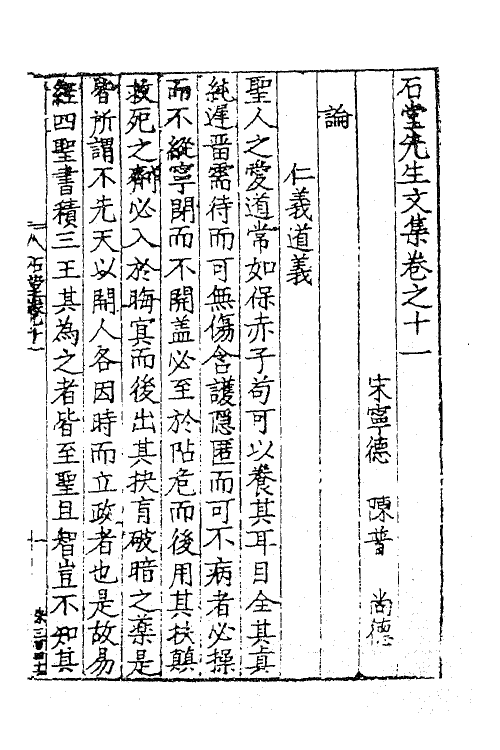 石堂先生文集卷之十一
宋寧德 陳普 尚德
論
仁義道義
聖人之愛道常如保赤子苟可以養其耳目全其眞
純遲畱需待而可無傷含護隠匿而可不病者必操
而不縱寧閉而不開盖必至於阽危而後用其扶顛
救死之劑必入於晦㝠而後出其抉盲破暗之藥是
皆所謂不先天以開人各因時而立政者也是故易
經四聖書積三王其為之者皆至聖且智豈不知其
石堂卷十一